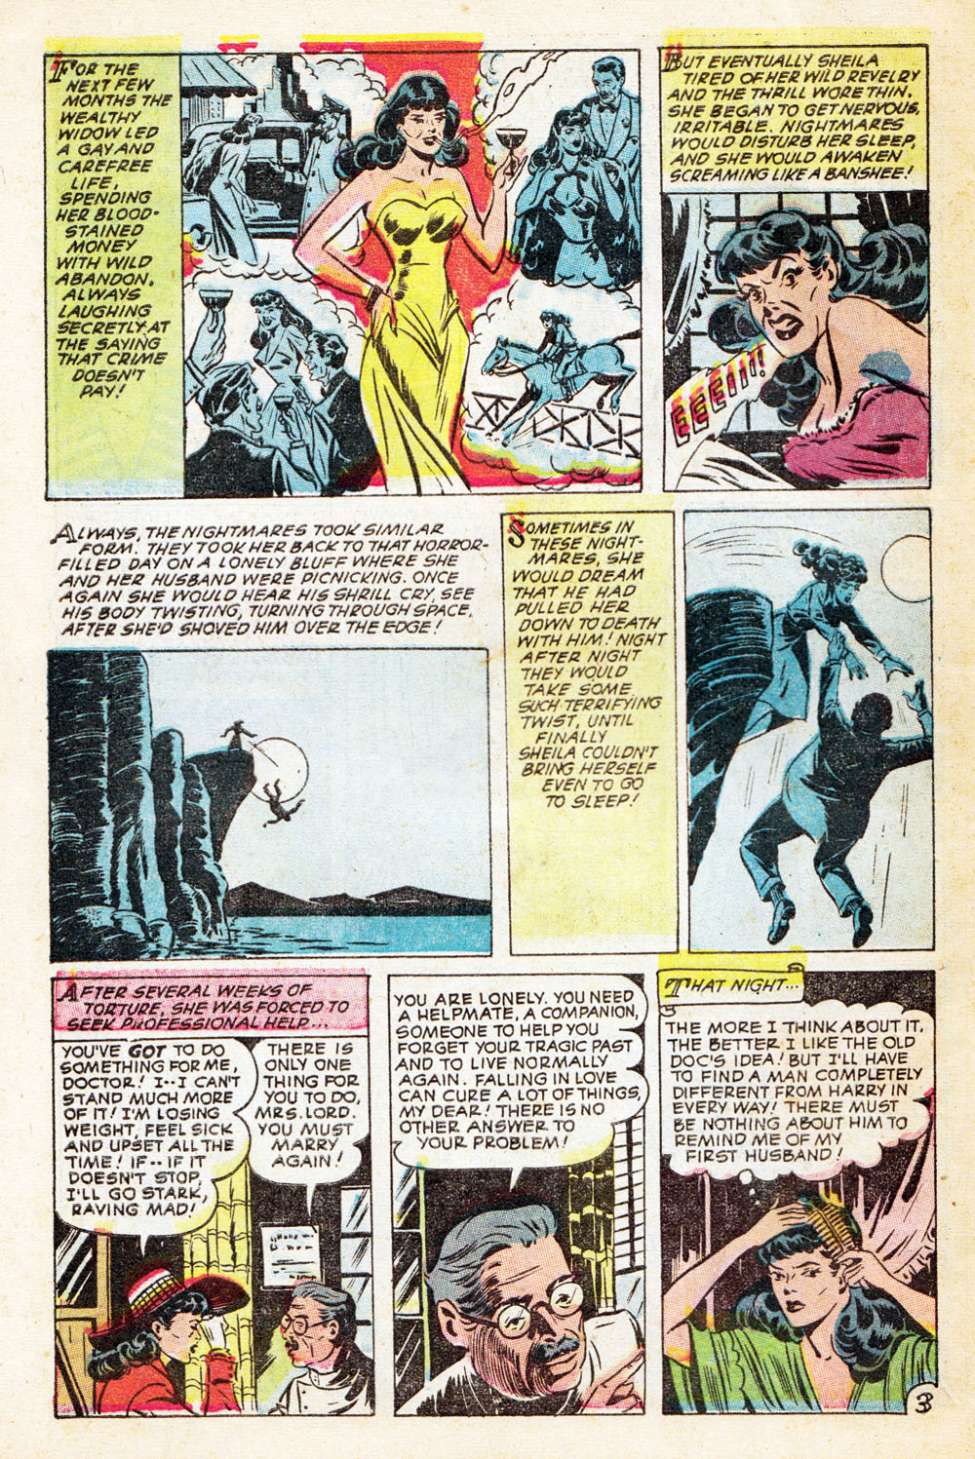 FOR THE
NEXT FEW
MONTHS THE
WEALTHY
WIDOW LED
A GAY AND
CAREFREE
LIFE,
SPENDING
HER BLOOD-
STAINED
MONEY
WITH WILD
ABANDON,
ALWAYS
LAUGHING
SECRETLY AT
THE SAYING
THAT CRIME
DOESN'T
PAY!
BUT EVENTUALLY SHEILA
TIRED OF HER WILD REVELRY
AND THE THRILL WORE THIN.
SHE BEGAN TO GET NERVOUS,
IRRITABLE. NIGHTMARES
WOULD DISTURB HER SLEEP,
AND SHE WOULD AWAKEN
SCREAMING LIKE A BANSHEE!
EEEIII!
ALWAYS, THE NIGHTMARES TOOK SIMILAR
FORM. THEY TOOK HER BACK TO THAT HORROR-
FILLED DAY ON A LONELY BLUFF WHERE SHE
AND HER HUSBAND WERE PICNICKING. ONCE
AGAIN SHE WOULD HEAR HIS SHRILL CRY, SEE
HIS BODY TWISTING, TURNING THROUGH SPACE,
AFTER SHE'D SHOVED HIM OVER THE EDGE!
SOMETIMES IN
THESE NIGHT-
MARES, SHE
WOULD DREAM
THAT HE HAD
PULLED HER
DOWN TO DEATH
WITH HIM! NIGHT
AFTER NIGHT
THEY WOULD
TAKE SOME
SUCH TERRIFYING
TWIST, UNTIL
FINALLY
SHEILA COULDN'T
BRING HERSELF
EVEN TO GO
TO SLEEP!
AFTER SEVERAL WEEKS OF
TORTURE, SHE WAS FORCED TO
SEEK PROFESSIONAL HELP...
YOU'VE GOT TO DO
SOMETHING FOR ME,
DOCTOR! I--I CAN'T
STAND MUCH MORE
OF IT! I'M LOSING
WEIGHT, FEEL SICK
AND UPSET ALL THE
TIME! IF--IF IT
DOESN'T STOP,
I'LL GO STARK,
RAVING MAD!
THERE IS
ONLY ONE
THING FOR
YOU TO DO,
MRS. LORD.
YOU MUST
MARRY
AGAIN!
YOU ARE LONELY. YOU NEED
A HELPMATE, A COMPANION,
SOMEONE TO HELP YOU
FORGET YOUR TRAGIC PAST
AND TO LIVE NORMALLY
AGAIN. FALLING IN LOVE
CAN CURE A LOT OF THINGS,
MY DEAR! THERE IS NO
OTHER ANSWER TO
YOUR PROBLEM!
THAT NIGHT...
THE MORE I THINK ABOUT IT,
THE BETTER I LIKE THE OLD
DOC'S IDEA! BUT I'LL HAVE
TO FIND A MAN COMPLETELY
DIFFERENT FROM HARRY IN
EVERY WAY! THERE MUST
BE NOTHING ABOUT HIM TO
REMIND ME OF MY
FIRST HUSBAND!
3